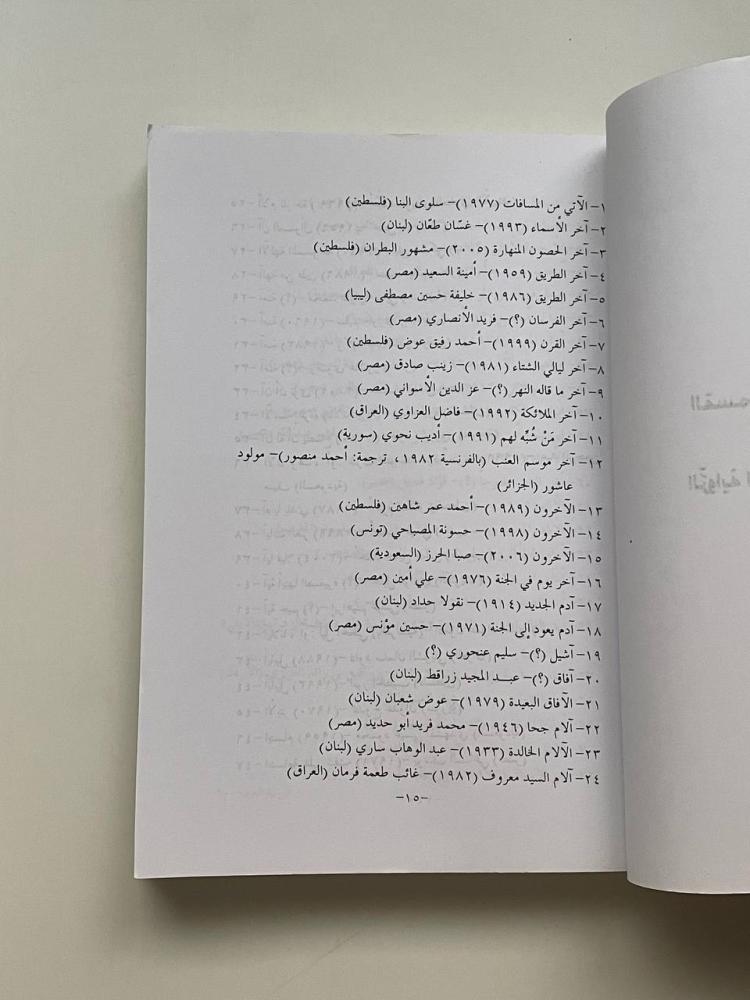 ١- الآتي من المسافات (١٩٧٧)- سلوى البنا (فلسطين)
٢- آخر الأسماء (١٩٩٣)- غسّان طعّان (لبنان)
٣- آخر الحصون المنهارة (٢٠٠٥)- مشهور البطران (فلسطين)
٤- آخر الطريق (١٩٥٩)- أمينة السعيد (مصر)
٥- آخر الطريق (١٩٨٦)- خليفة حسين مصطفى (ليبيا)
٦- آخر الفرسان (؟)- فريد الأنصاري (مصر)
٧- آخر القرن (١٩٩٩)- أحمد رفيق عوض (فلسطين)
٨- آخر ليالي الشتاء (١٩٨١)- زينب صادق (مصر)
٩- آخر ما قاله النهر (؟)- عز الدين الأسواني (مصر)
١٠- آخر الملائكة (١٩٩٢)- فاضل العزاوي (العراق)
١١- آخر مَنْ شُبِّه لهم (١٩٩١)- أديب نحوي (سورية)
١٢- آخر موسم العنب (بالفرنسية ١٩٨٢، ترجمة: أحمد منصور)- مولود
عاشور (الجزائر)
١٣- الآخرون (١٩٨٩)- أحمد عمر شاهين (فلسطين)
١٤- الآخرون (١٩٩٨)- حسونة المصباحي (تونس)
١٥- الآخرون (٢٠٠٦)- صبا الحرز (السعودية)
١٦- آخر يوم في الجنة (١٩٧٦)- علي أمين (مصر)
١٧- آدم الجديد (١٩١٤)- نقولا حداد (لبنان)
١٨- آدم يعود إلى الجنة (١٩٧١)- حسين مؤنس (مصر)
١٩- آشيل (؟)- سليم عنحوري (؟)
٢٠- آفاق (؟)- عبد المجيد زراقط (لبنان)
٢١- الآفاق البعيدة (١٩٧٩)- عوض شعبان (لبنان)
٢٢- آلام جحا (١٩٤٦)- محمد فريد أبو حديد (مصر)
٢٣- الآلام الخالدة (١٩٣٣)- عبد الوهاب ساري (لبنان)
٢٤- آلام السيد معروف (١٩٨٢)- غائب طعمة فرمان (العراق)
-١٥-